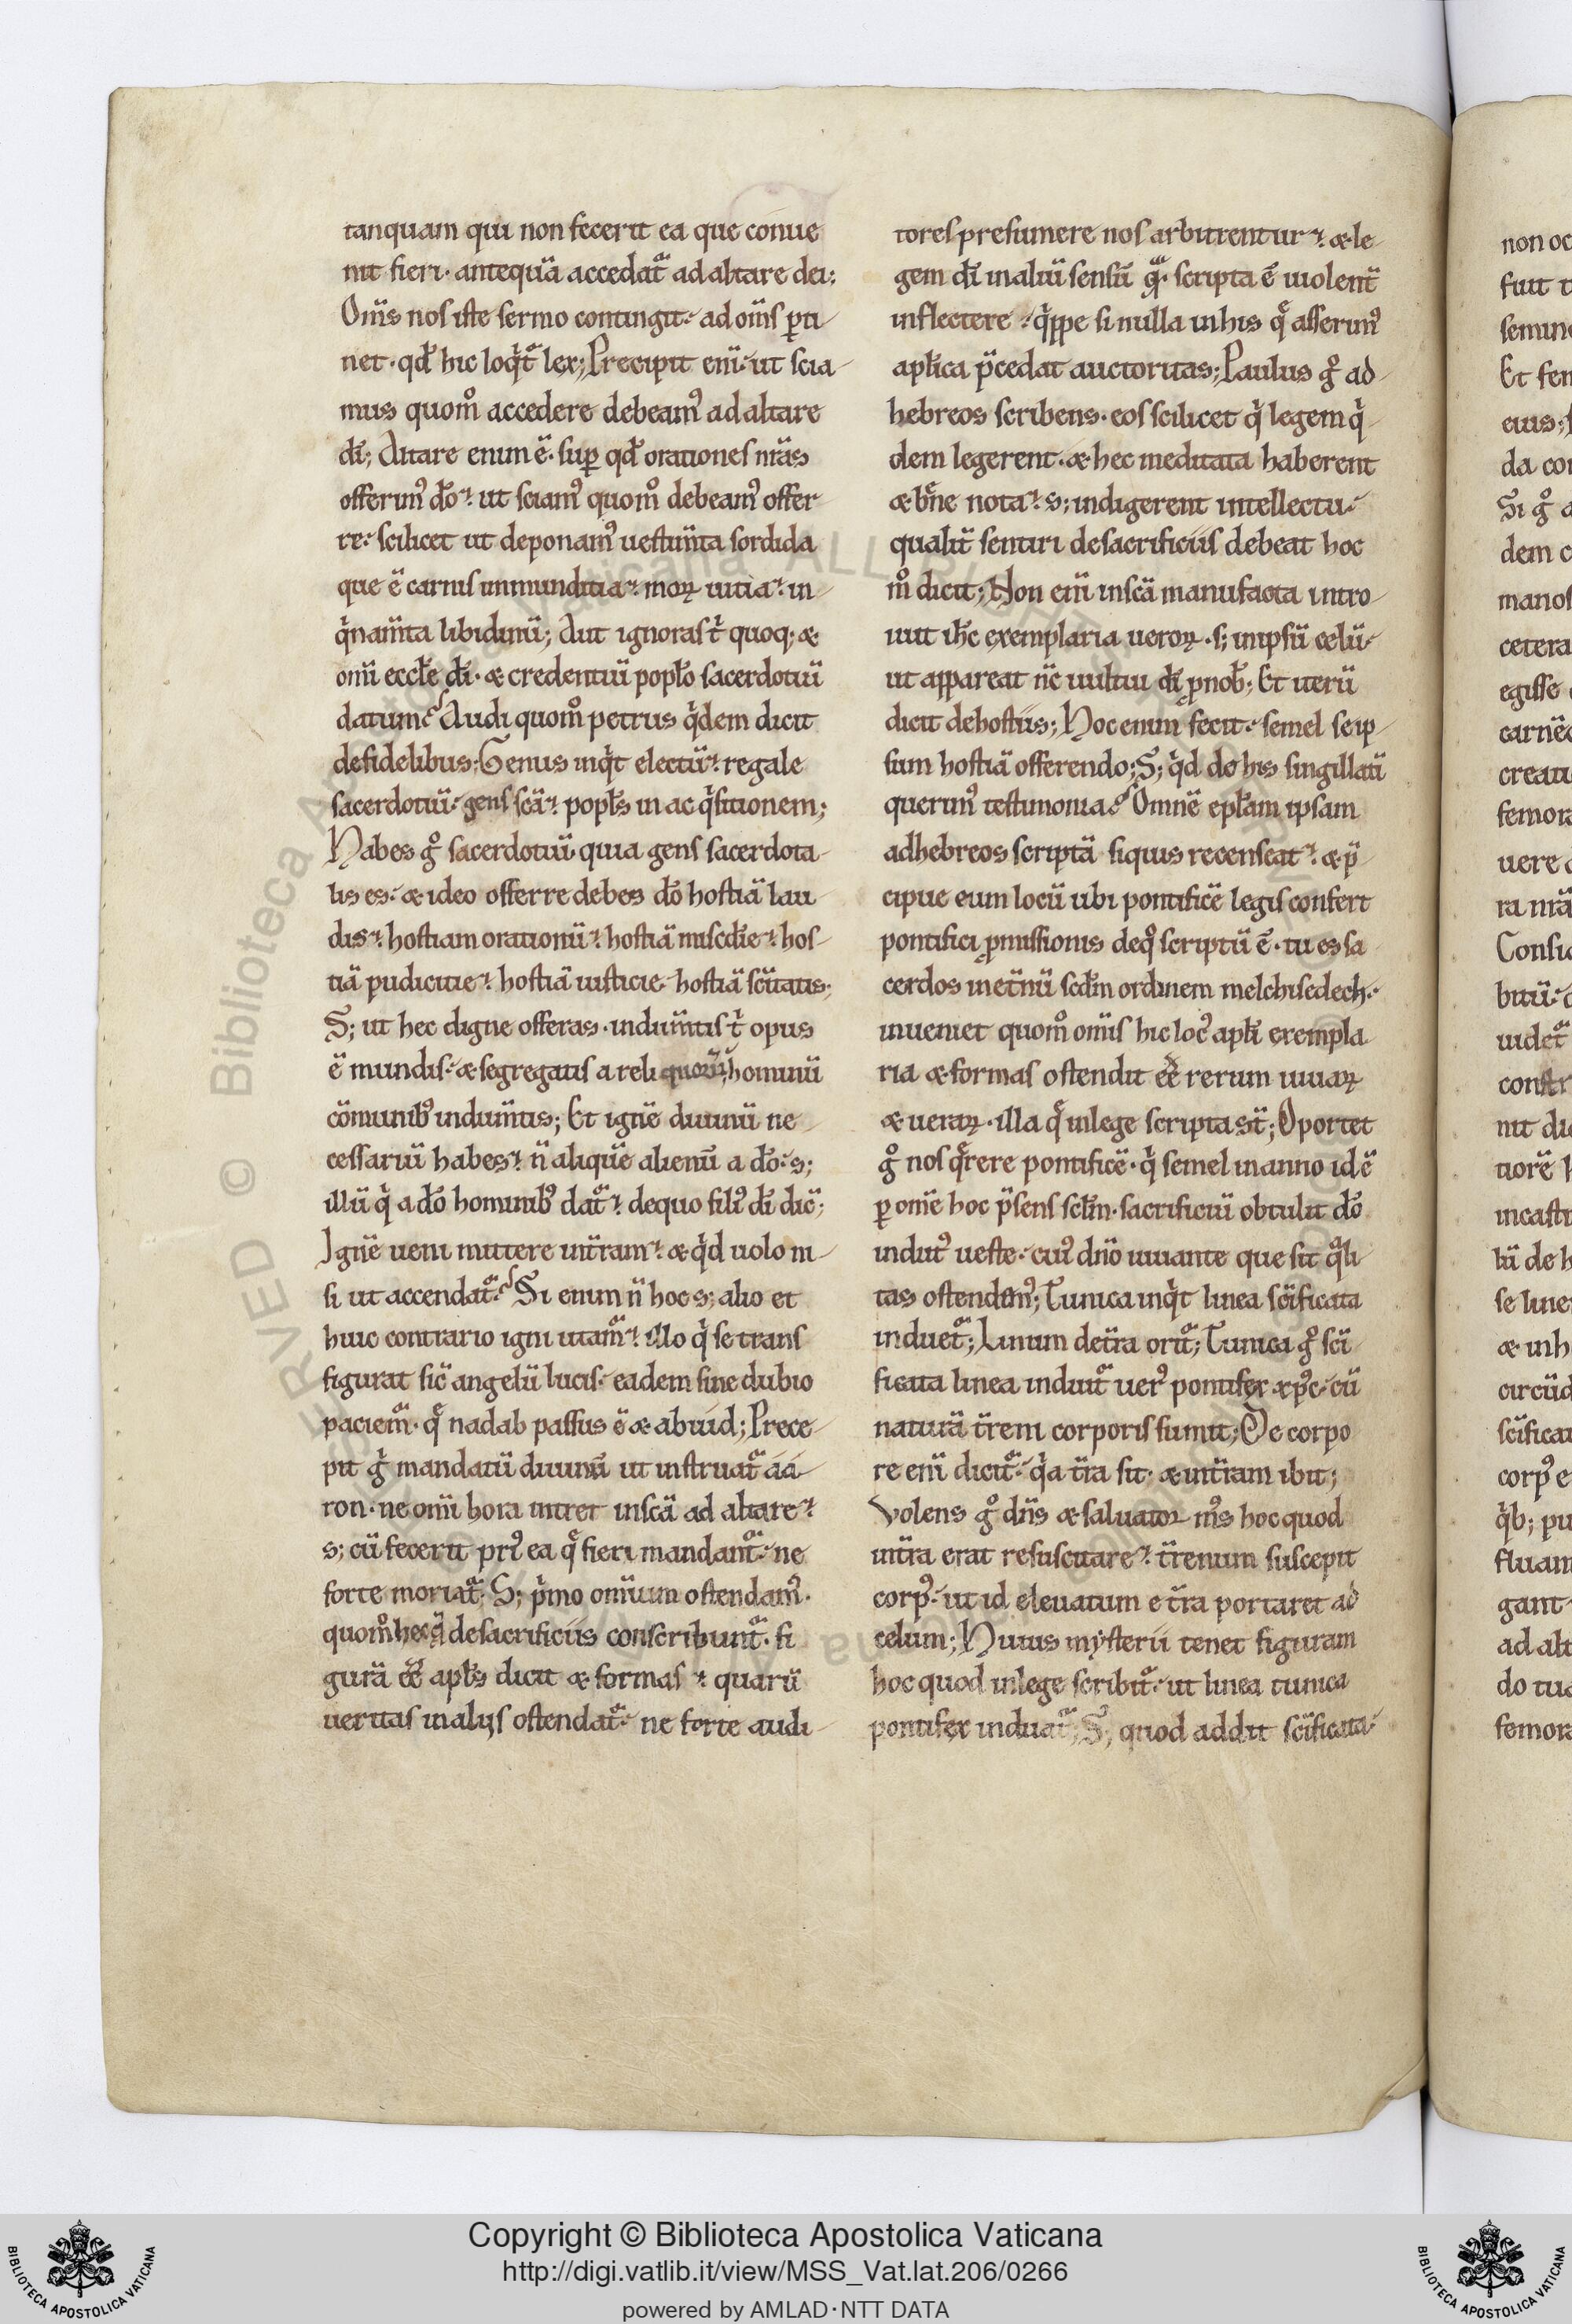 tanquam qui non fecerit ea que cōue
nit fieri· antequā accedat᷑ ad altare dei;
Om̄s nos iste sermo contingit· ad om̄s ꝑti
net· qđ hic loqⁱt᷑ lex; Precipit enī· ut scia
mus quom̊ accedere debeam᷒ ad altare
dī; Altare enim ē· suꝑ qđ orationes nr̄as
offerim᷒ dō· ut sciam᷒ quom̊ debeam᷒ offer
re· scilicet ut deponam᷒ uestim̄ta sordida
que ē carnis inmunditia· moꝝ uitia· in
qⁱnam̄ta libidinū; Aut ignoras t̄ quoq; æ
om̄i eccłe dī· æ credentiū popło sacerdotiū
datum? Audi quom̊ petrus qⁱdem dicit
de fidelibus; Genus inqⁱt electū· regale
sacerdotiū· gens sc̄a· popłs in acqⁱsitionem;
Habes g̊ sacerdotiū quia gens sacerdota
lis es· æ ideo offerre debes dō hostiā lau
dis· hostiam orationū· hostiā mis̄cdie· hos
tiā pudicitie· hostiā iusticie hostiā sc̄itatis;
S; ut hec digne offeras· indum̄tis t̄ opus
ē mundis· æ segregatis a reliquorū hominū
cōmunib᷒ indum̄tis; Et ignē diuinū ne
cessariū habes· n̄ aliquē alienū a dō· s;
illū qⁱ a dō hominib᷒ dat᷑· de quo fili᷒ dī dic̄;
Ignē ueni mittere in t̄ram· æ qⁱd uolo ni
si ut accendat᷑? Si enim n̄ hoc s; alio et
huic contrario igni utam᷑· illo qⁱ se trans
figurat sic̄ angelū lucis· eadem sine dubio
paciem᷑· q̄ nadab passus ē æ abiud; Prece
pit g̊ mandatū diuinū ut instruat᷑ aa
ron· ne om̄i hora intret in sc̄a ad altare·
s; cū fecerit pri᷒ ea q̄ fieri mandant᷑· ne
forte moriat᷑· S; pⁱmo omnium ostendam᷒·
quom̊ hec q̄ de sacrificiis conscribunt᷑· fi
gurā ēē apłs dicit æ formas· quarū
ueritas in alijs ostendat᷑· ne forte audi
tores presumere nos arbitrentur· æ le
gem dī in aliū sensū quā scripta ē uiolent̄
inflectere· qⁱppe si nulla in his q̄ asserim᷒
apłica p̄cedat auctoritas; Paulus g̊ ad
hebreos scribens· eos scilicet qⁱ legem qⁱ
dem legerent· æ hec meditata haberent
æ bn̄e nota· s; indigerent intellectu·
qualit̄ sentiri de sacrificiis debeat hoc
m̊ dicit; Non enī in sc̄a manufacta intro
iuit ih̄c exemplaria ueroꝝ· s; in ipsū celū·
ut appareat nc̄ uultui dī ꝓ nob̄; Et iterū
dicit de hostiis; Hoc enim fecit· semel seip
sum hostiā offerendo; S; qⁱd de his singillatī
querim᷒ testimonia? Omnē epłam ipsam
ad hebreos scriptā siquis recenseat· æ p̄
cipue eum locū ubi pontificē legis confert
pontifici ꝓmissionis de q̊ scriptū ē· tu es sa
cerdos in et̄nū scđm ordinem melchisedech·
inueniet quom̊ om̄is hic loc᷒ apłi exempla
ria æ formas ostendit ēē rerum uiuaꝝ
æ ueraꝝ· illa q̄ in lege scripta st̄; Oportet
g̊ nos q̄rere pontificē· qⁱ semel in anno id ē
ꝑ om̄e hoc p̄sens scłm· sacrificiū obtulit dō
indut᷒ ueste· cui᷒ dn̄o iuuante que sit qᵃli
tas ostendem᷒; Tunica inqⁱt linea sc̄ificata
induet᷑; Linum de t̄ra orit᷑; Tunica g̊ sc̄i
ficata linea induit᷑ uer᷒ pontifex xp̄c· cū
naturā t̄reni corporis sumit; De corpo
re enī dicit᷑· qⁱa t̄ra sit· æ in t̄ram ibit;
Volens g̊ dn̄s æ saluator m̄s hoc quod
in t̄ra erat resuscitare· t̄renum suscepit
corp᷒· ut id eleuatum e t̄ra portaret ad
celum; Huius mysterii tenet figuram
hoc quod in lege scribit᷑· ut linea tunica
pontifex induat᷑; S; quod addit sc̄ificata·
Copyright © Biblioteca Apostolica Vaticana
http://digi.vatlib.it/view/MSS_Vat.lat.206/0266
powered by AMLAD·NTT DATA